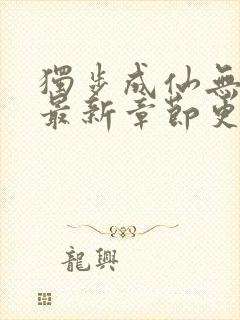 獨步成仙無
最新章節更
龍興